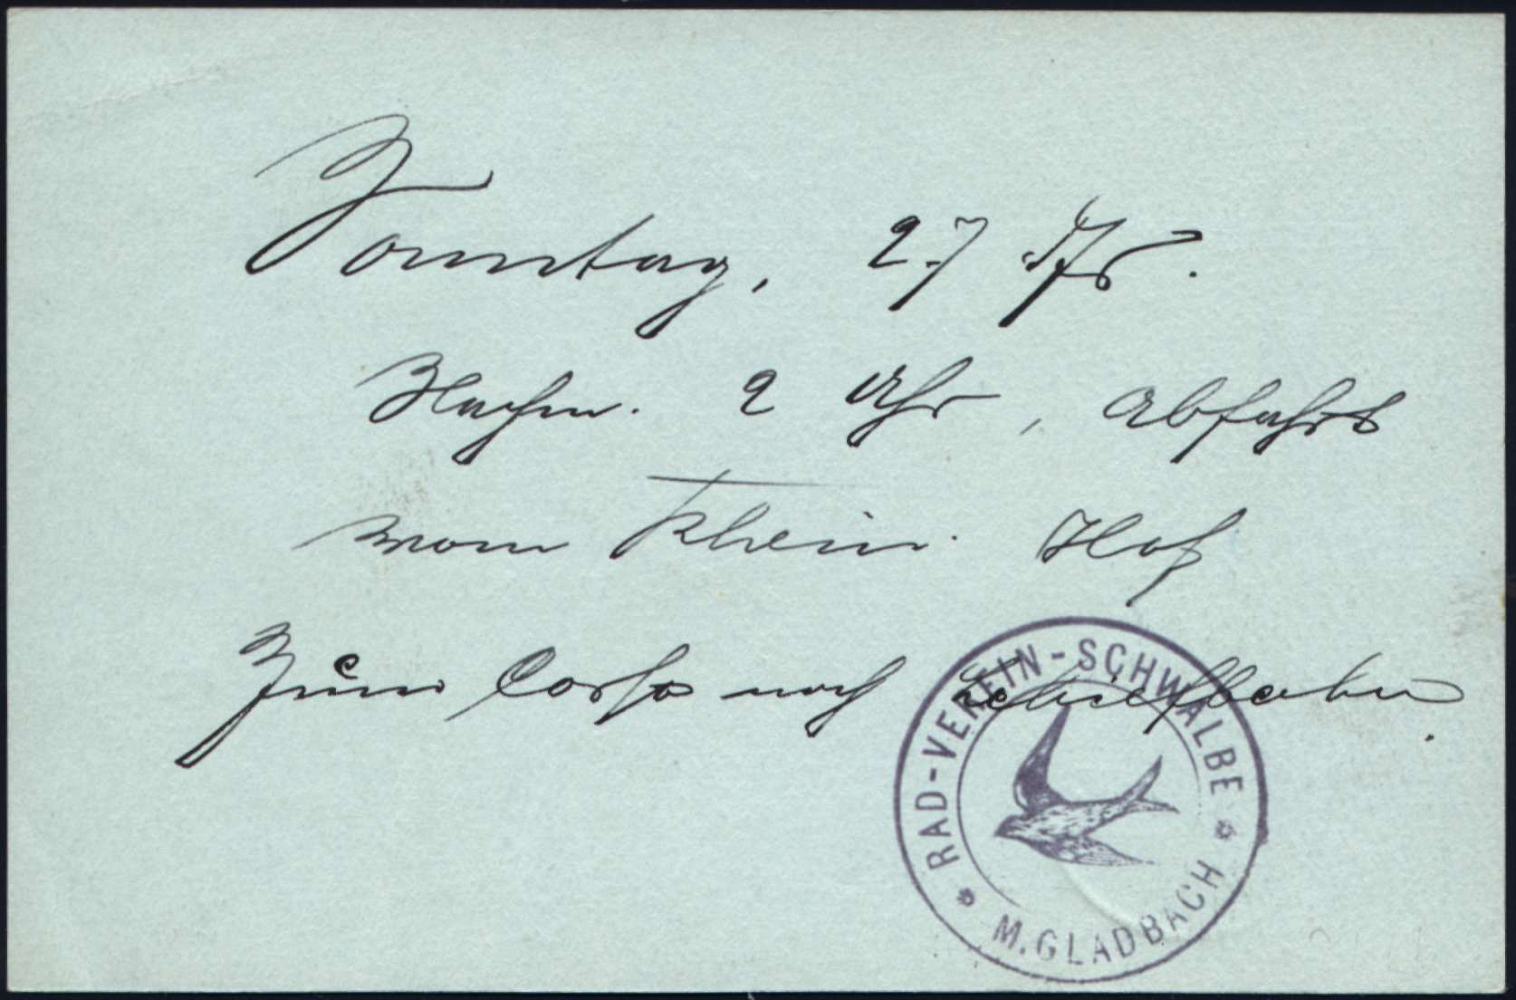 Sonntag, 27
Nachm. 2 Uhr, Abfahrt
vom Rhein. Hof
zum Corso nach Schiefbahn.
RAD-VEREIN-SCHWALBE
M. GLADBACH